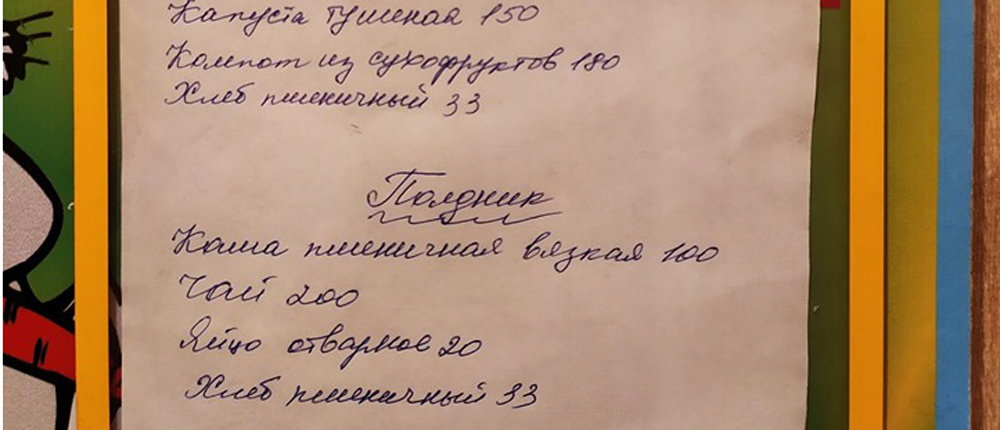 Капуста тушеная 150
Компот из сухофруктов 180
Хлеб пшеничный 33
Полдник
Каша пшеничная вязкая 100
Чай 200
Яйцо отварное 20
Хлеб пшеничный 33